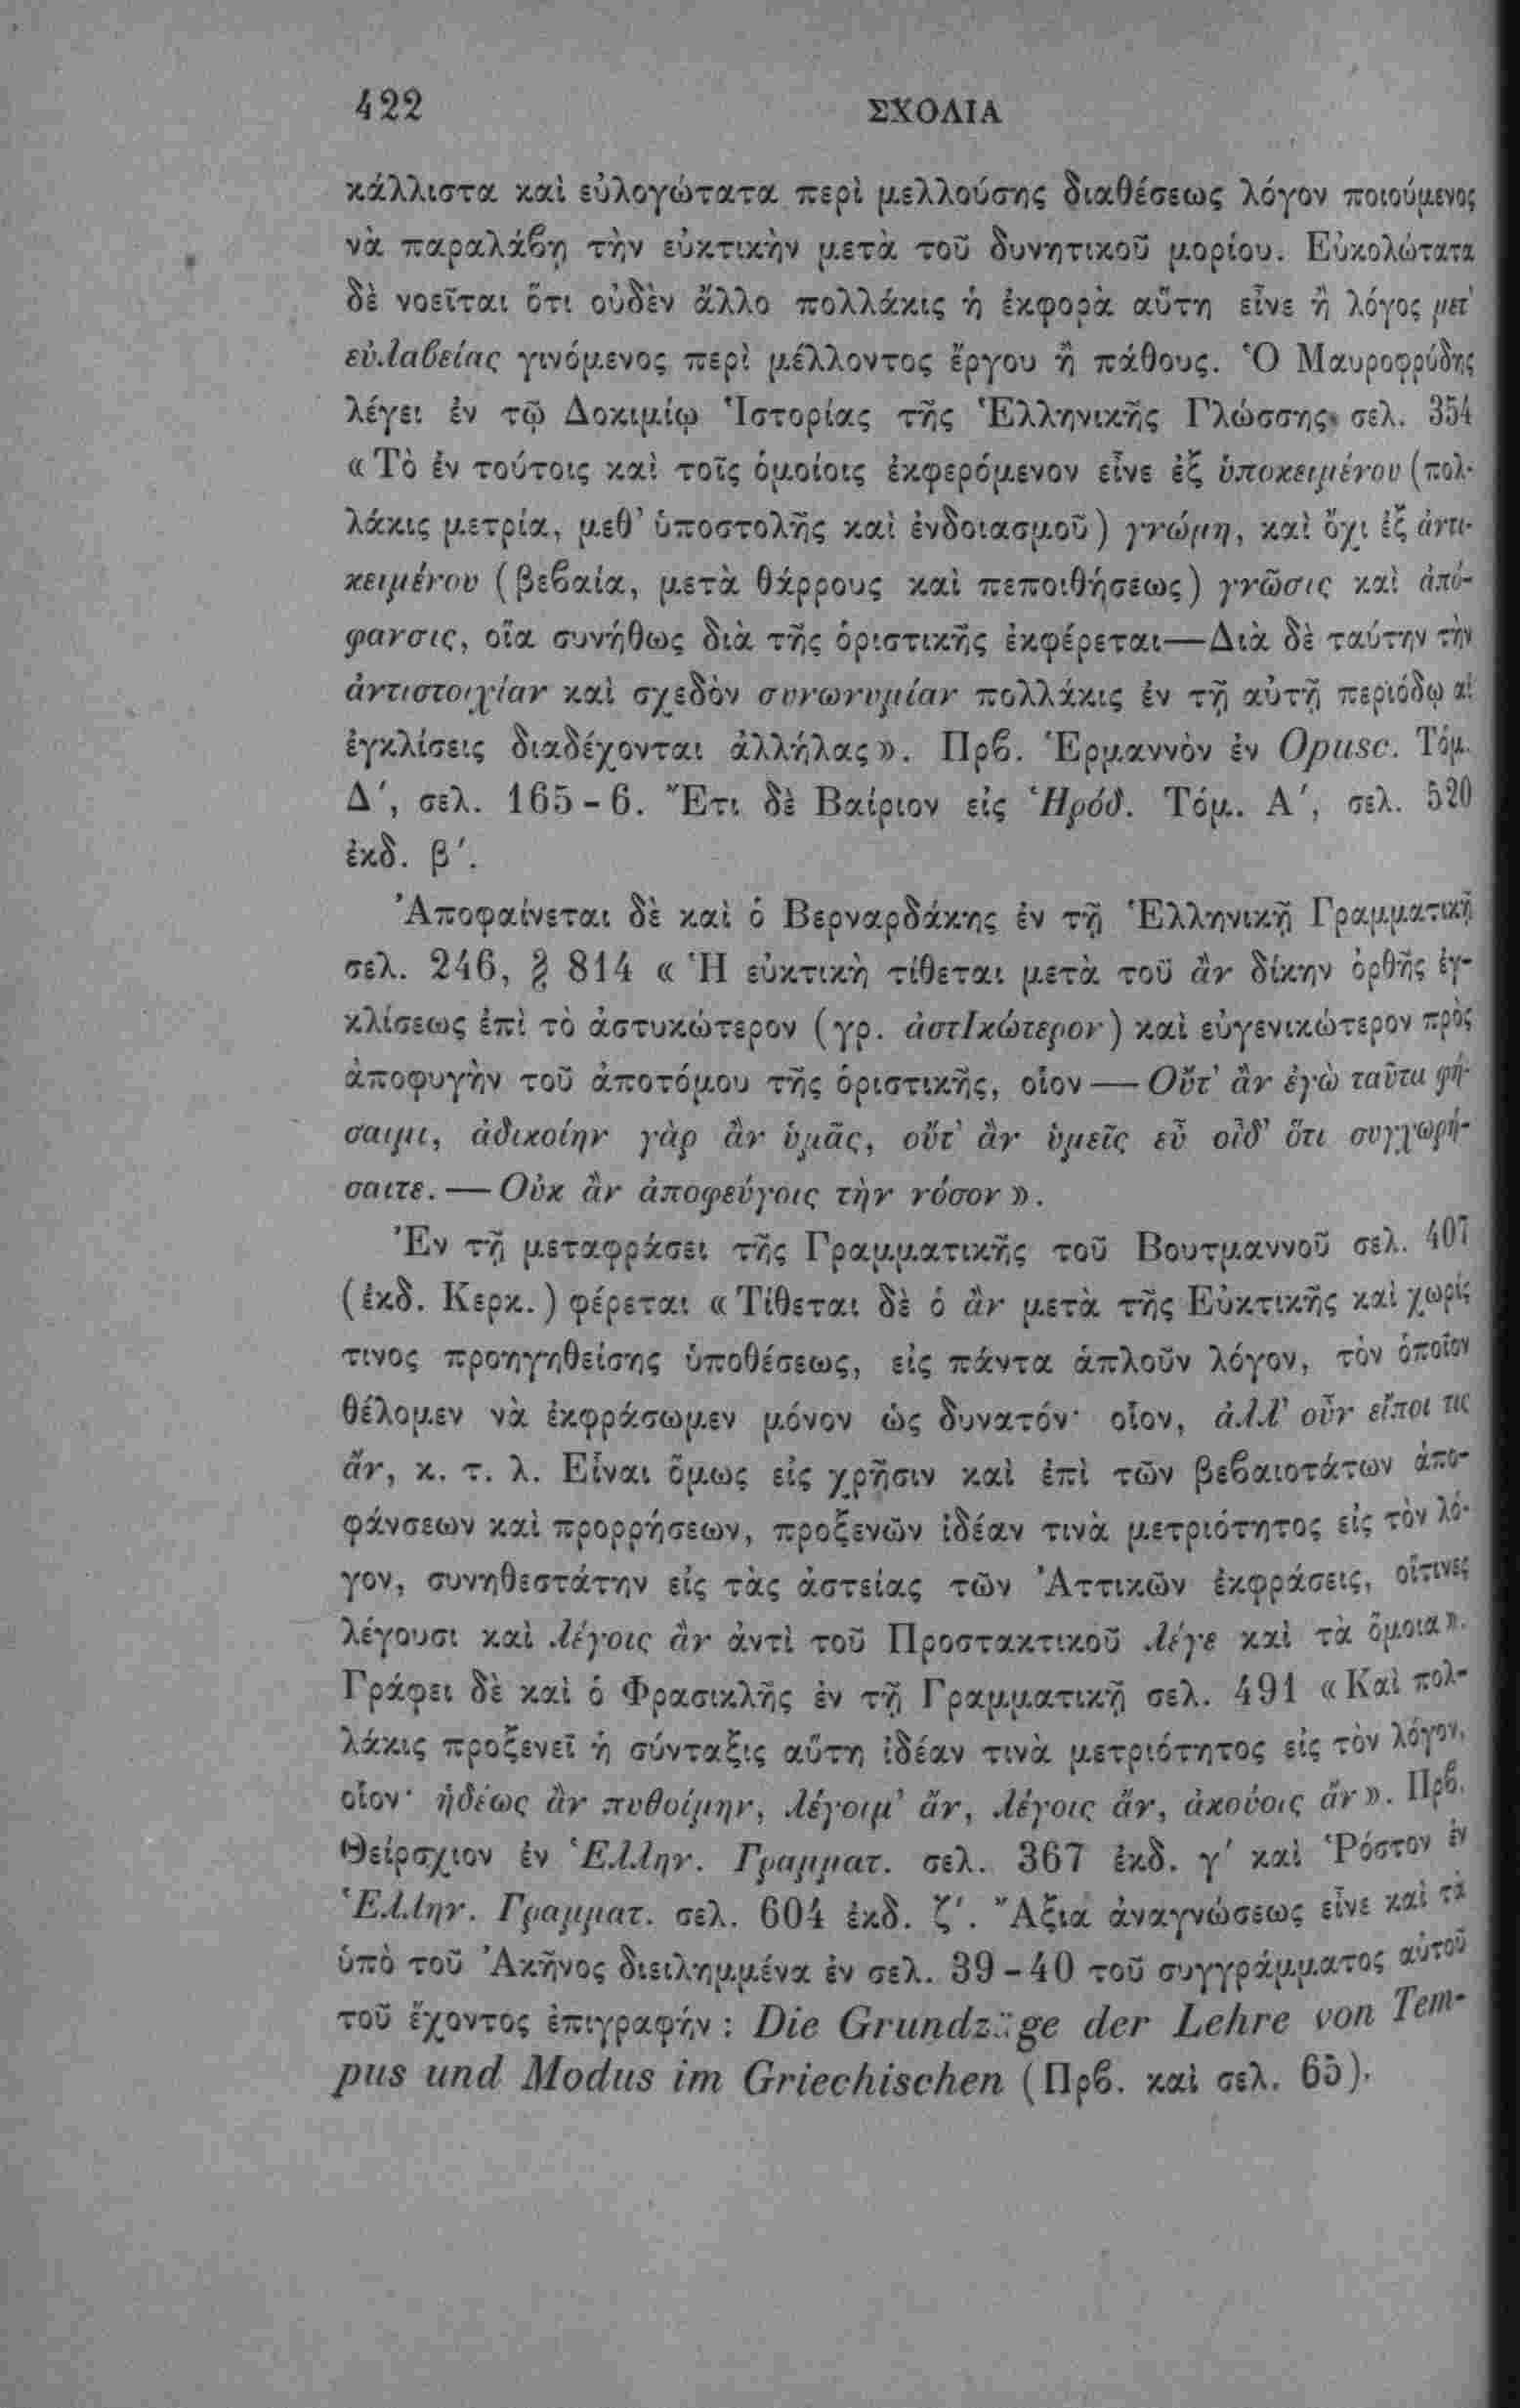 422 ΣΧΟΛΙΑ
κάλλιστα καὶ εὐλογώτατα περὶ μελλούσης διαθέσεως λόγον ποιούμενος
νὰ παραλάβῃ τὴν εὐκτικὴν μετὰ τοῦ δυνητικοῦ μορίου. Εὐκολώτατα
δὲ νοεῖται ὅτι οὐδὲν ἄλλο πολλάκις ἡ ἐκφορὰ αὕτη εἶνε ἢ λόγος μετ'
εὐλαβείας γινόμενος περὶ μέλλοντος ἔργου ἢ πάθους. Ὁ Μαυροφρύδης
λέγει ἐν τῷ Δοκιμίῳ Ἱστορίας τῆς Ἑλληνικῆς Γλώσσης σελ. 354
«Τὸ ἐν τούτοις καὶ τοῖς ὁμοίοις ἐκφερόμενον εἶνε ἐξ ὑποκειμένου (πολ-
λάκις μετρία, μεθ' ὑποστολῆς καὶ ἐνδοιασμοῦ) γνώμη, καὶ ὄχι ἐξ ἀντι-
κειμένου (βεβαία, μετὰ θάρρους καὶ πεποιθήσεως) γνῶσις καὶ ἀπό-
φανσις, οἵα συνήθως διὰ τῆς ὁριστικῆς ἐκφέρεται—Διὰ δὲ ταύτην τὴν
ἀντιστοιχίαν καὶ σχεδὸν συνωνυμίαν πολλάκις ἐν τῇ αὐτῇ περιόδῳ αἱ
ἐγκλίσεις διαδέχονται ἀλλήλας». Πρβ. Ἑρμαννὸν ἐν Opusc. Τόμ.
Δ', σελ. 165-6. Ἔτι δὲ Βαίριον εἰς Ἡρόδ. Τόμ. Α', σελ. 520
ἐκδ. β'.
Ἀποφαίνεται δὲ καὶ ὁ Βερναρδάκης ἐν τῇ Ἑλληνικῇ Γραμματικῇ
σελ. 246, § 814 «Ἡ εὐκτικὴ τίθεται μετὰ τοῦ ἂν δίκην ὀρθῆς ἐγ-
κλίσεως ἐπὶ τὸ ἀστυκώτερον (γρ. ἀστΙκώτερον) καὶ εὐγενικώτερον πρὸς
ἀποφυγὴν τοῦ ἀποτόμου τῆς ὁριστικῆς, οἷον — Οὔτ' ἂν ἐγὼ ταῦτα φή-
σαιμι, ἀδικοίην γὰρ ἂν ὑμᾶς, οὔτ' ἂν ὑμεῖς εὖ οἶδ' ὅτι συγχωρή-
σαιτε. — Οὐκ ἂν ἀποφεύγοις τὴν νόσον».
Ἐν τῇ μεταφράσει τῆς Γραμματικῆς τοῦ Βουτμαννοῦ σελ. 407
(ἐκδ. Κερκ.) φέρεται «Τίθεται δὲ ὁ ἂν μετὰ τῆς Εὐκτικῆς καὶ χωρίς
τινος προηγηθείσης ὑποθέσεως, εἰς πάντα ἁπλοῦν λόγον, τὸν ὁποῖον
θέλομεν νὰ ἐκφράσωμεν μόνον ὡς δυνατόν· οἷον, ἀλλ' οὖν εἴποι τις
ἄν, κ. τ. λ. Εἶναι ὅμως εἰς χρῆσιν καὶ ἐπὶ τῶν βεβαιοτάτων ἀπο-
φάνσεων καὶ προρρήσεων, προξενῶν ἰδέαν τινὰ μετριότητος εἰς τὸν λό-
γον, συνηθεστάτην εἰς τὰς ἀστείας τῶν Ἀττικῶν ἐκφράσεις, οἵτινες
λέγουσι καὶ λέγοις ἂν ἀντὶ τοῦ Προστακτικοῦ λέγε καὶ τὰ ὅμοια».
Γράφει δὲ καὶ ὁ Φρασικλῆς ἐν τῇ Γραμματικῇ σελ. 491 «Καὶ πολ-
λάκις προξενεῖ ἡ σύνταξις αὕτη ἰδέαν τινὰ μετριότητος εἰς τὸν λόγον,
οἷον· ἡδέως ἂν πυθοίμην, λέγοιμ' ἄν, λέγοις ἄν, ἀκούοις ἄν». Πρβ.
Θείρσχιον ἐν Ἑλλην. Γραμματ. σελ. 367 ἐκδ. γ' καὶ Ῥόστον ἐν
Ἑλλην. Γραμματ. σελ. 604 ἐκδ. ζ'. Ἄξια ἀναγνώσεως εἶνε καὶ τὰ
ὑπὸ τοῦ Ἀκῆνος διειλημμένα ἐν σελ. 39-40 τοῦ συγγράμματος αὐτοῦ
τοῦ ἔχοντος ἐπιγραφήν: Die Grundzüge der Lehre von Tem-
pus und Modus im Griechischen (Πρβ. καὶ σελ. 65).